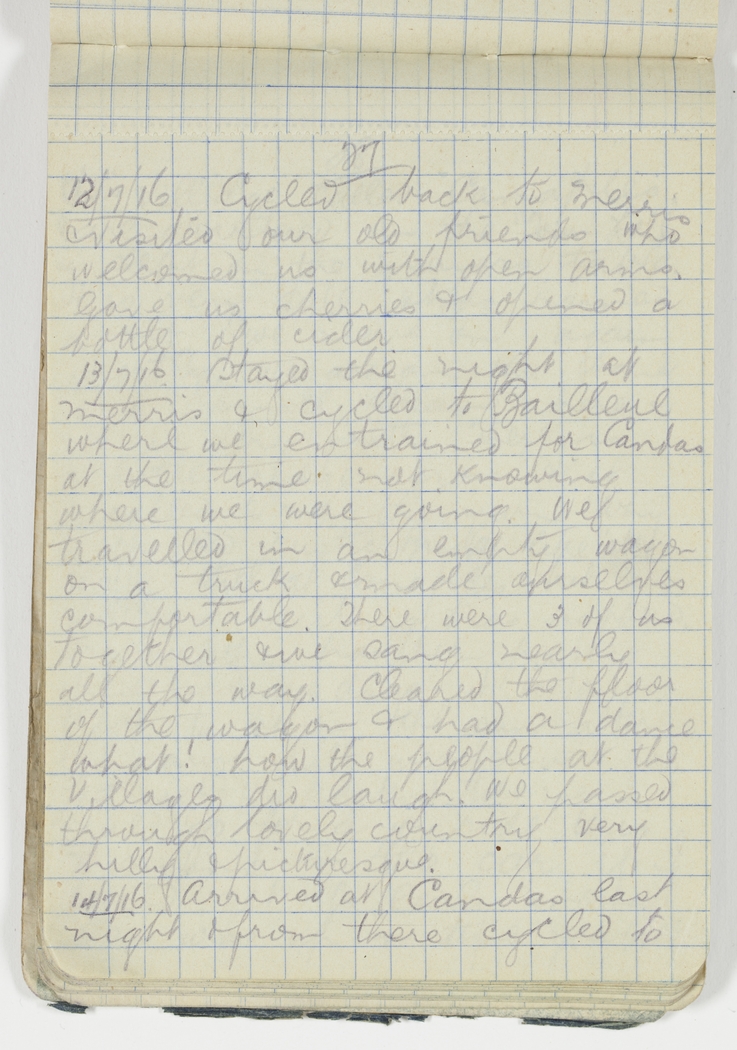 27
12/7/16 Cycled back to Merris
Visited our old friends who
welcomed us with open arms.
Gave us cherries & opened a
bottle of cider
13/7/16. Stayed the night at
Merris & cycled to Bailleul
where we entrained for Candas
at the time not knowing
where we were going. We
travelled in an empty wagon
on a truck & made ourselves
comfortable. There were 3 of us
together & we sang nearly
all the way. Cleared the floor
of the wagon & had a dance
what! how the people at the
Villages did laugh. We passed
through lovely country very
hilly & picturesque.
14/7/16. Arrived at Candas last
night & from there cycled to